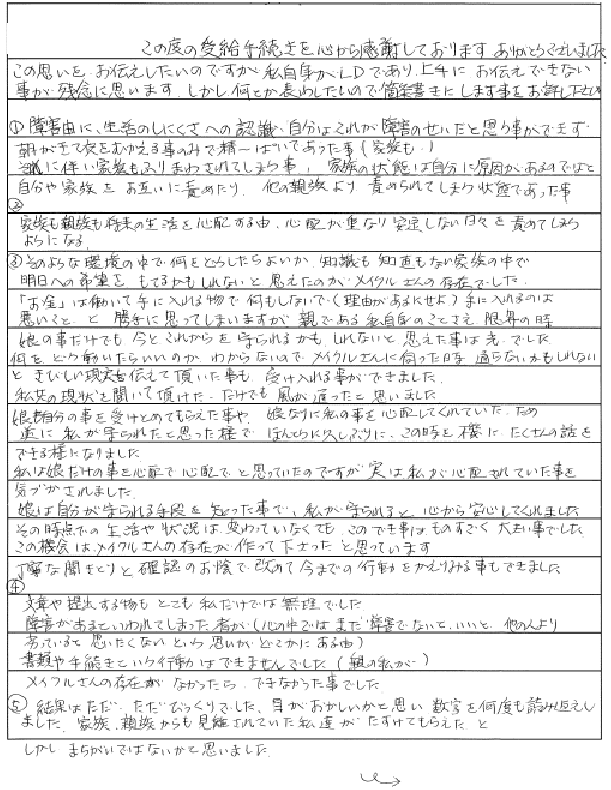 この度の受給手続きを心から感謝しております ありがとうございました
この思いを、お伝えしたいのですが 私自身がLDであり、上手にお伝えできない
事が残念に思います。しかし何とか表わしたいので箇条書きにします事をお許し下さい
① 障害由に、生活のしにくさへの認識、自分はこれが障害のせいだと思う事ができず
朝がきて夜をむかえる事のみで精一ぱいであった事(家族も)
それに伴い家族もふりまわされてしまう事、家族の状態は自分に原因があるのではと
自分や家族を お互いに責めたり、他の親族より責められてしまう状態であった事
②
家族も親族も将来の生活を心配する由、心配が重なり安定しない日々を責めてしまう
ようになる
③ そのような環境の中で何をどうしたらよいか、知識も知恵もない家族の中で
明日への希望を もてるかもしれないと 思えたのがメイクルさんの存在でした
「お金」は働いて手に入れる物で 何もしないで(理由があるにせよ)手に入れるのは
悪いこと と 勝手に思ってしまいますが 親である私自身のことさえ 限界の時
娘の事だけでも 今とこれからを守られるかも しれないと思えた事は 光でした
何を どう動いたらいいのか、わからないので メイクルさんに伺った日 通らないかもしれない
と きびしい現実を伝えて頂いた事も 受け入れる事ができました
私共の現状を聞いて頂けた だけでも 風が通ったと 思いました
娘も自分の事を受けとめてもらえた事や、娘なりに私の事を心配してくれていた ため
逆に 私が守られたと思った様で ほんとうに久しぶりに、この時を機に たくさんの話を
できる様になりました
私は娘だけの事を心配で心配で と思っていたのですが 実は私が心配されていた事を
気づかされました
娘は自分が守られる手段を 知った事で、私が守られると 心から安心してくれました
その時点での生活や状況は 変わっていなくても このでき事は ものすごく大きい事でした
この機会はメイクルさんの存在が 作って下さった と思っています
丁寧な聞きとりと 確認のお陰で 改めて 今までの行動をかえりみる事もできました
④
文章や提出する物も とても私だけでは無理でした
障害があるといわれてしまった者が(心の中では まだ 障害でないと、いいと、他の人より
劣っていると 思いたくない という 思いが どこかにある由)
書類や手続きという行動は できませんでした (親の私が)
メイクルさんの存在が なかったら できなかった事でした
⑤ 結果はただ、ただびっくりでした、目がおかしいかと思い 数字を何度も読み返えし
ました 家族、親族からも見離されていた私達が たすけてもらえた と
しかし まちがいではないかと思いました